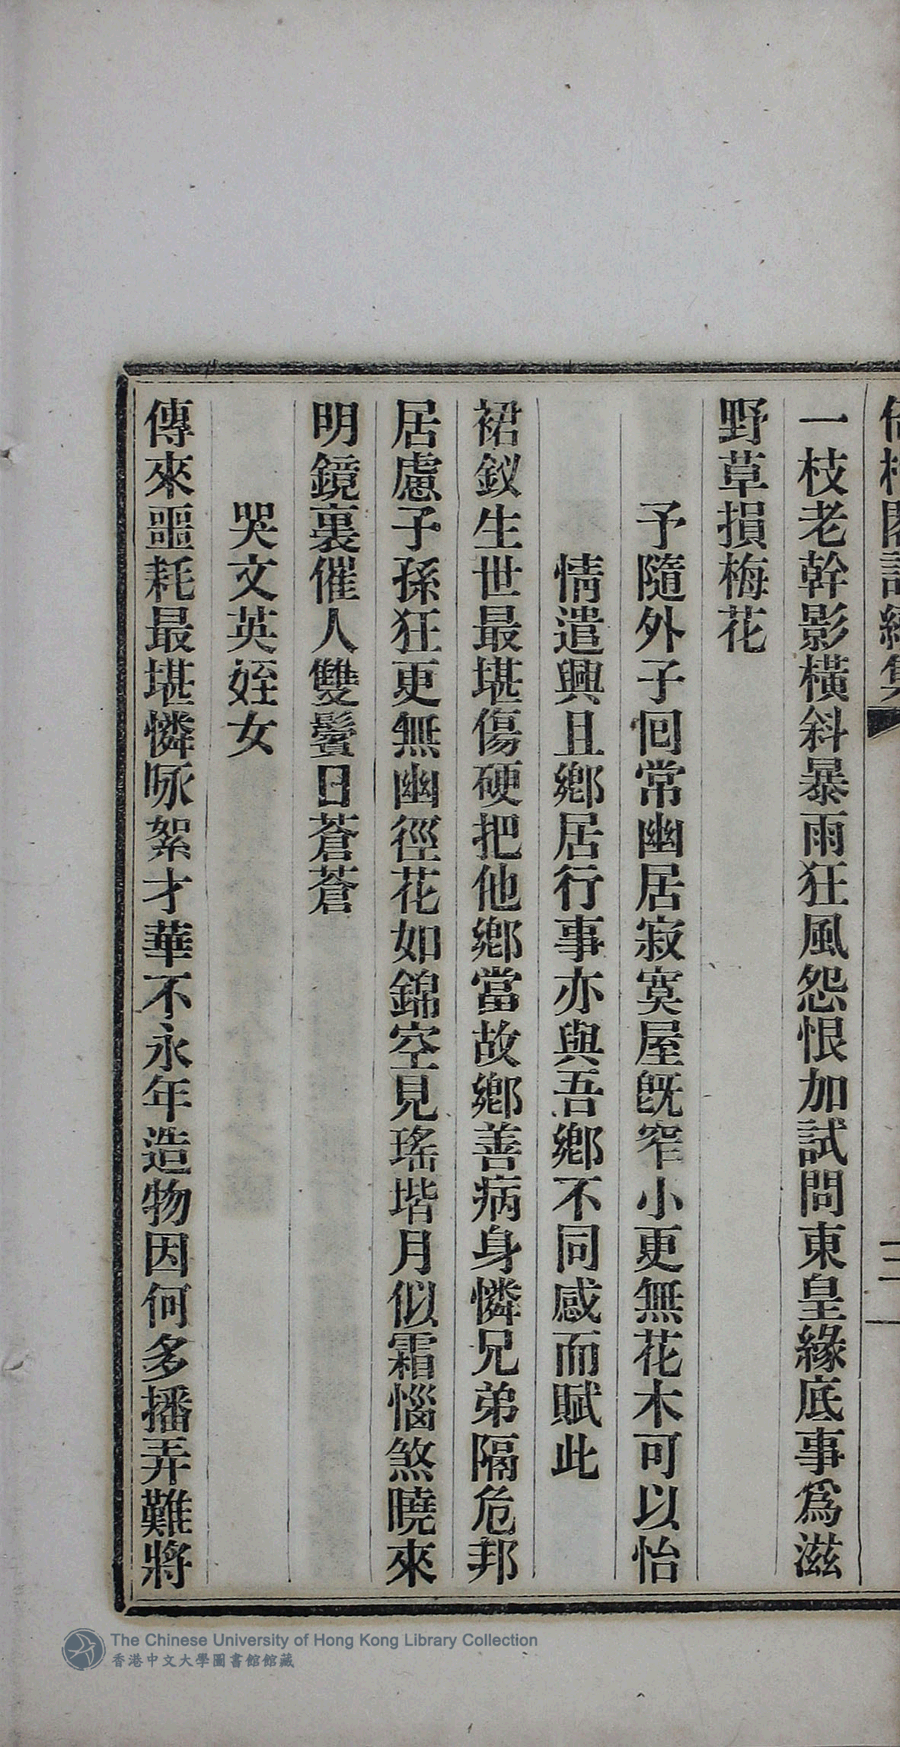 一枝老幹影橫斜暴雨狂風怨恨加試問東皇緣底事爲滋
野草損梅花
予隨外子回常幽居寂寞屋旣窄小更無花木可以怡
情遣興且鄕居行事亦與吾鄕不同感而賦此
裙釵生世最堪傷硬把他鄕當故鄕善病身憐兄弟隔危邦
居慮子孫狂更無幽徑花如錦空見瑤堦月似霜惱煞曉來
明鏡裏催人雙鬢日蒼蒼
哭文英姪女
傳來噩耗最堪憐咏絮才華不永年造物因何多播弄難將
The Chinese University of Hong Kong Library Collection
香港中文大學圖書館館藏